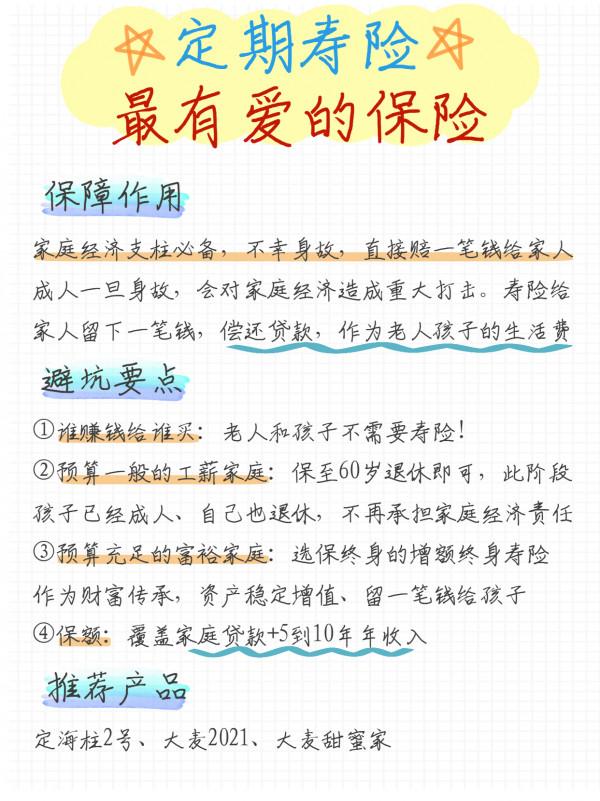 定期寿险
最有爱的保险
保障作用
家庭经济支柱必备，不幸身故，直接赔一笔钱给家人
成人一旦身故，会对家庭经济造成重大打击。寿险给
家人留下一笔钱，偿还贷款，作为老人孩子的生活费
避坑要点
①谁赚钱给谁买：老人和孩子不需要寿险！
②预算一般的工薪家庭：保至60岁退休即可，此阶段
孩子已经成人、自己也退休，不再承担家庭经济责任
③预算充足的富裕家庭：选保终身的增额终身寿险
作为财富传承，资产稳定增值、留一笔钱给孩子
④保额：覆盖家庭贷款+5到10年年收入
推荐产品
定海柱2号、大麦2021、大麦甜蜜家